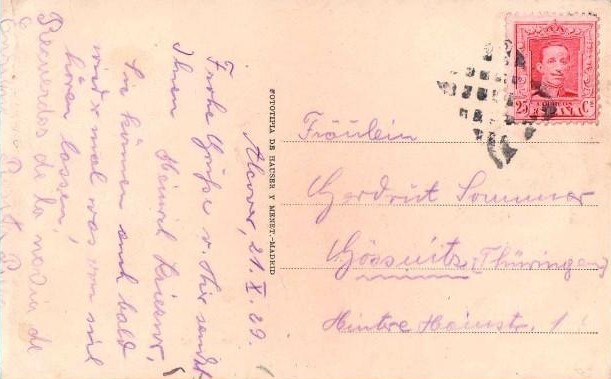 Alcover, 21.X.29.
Frohe Grüße v. hier sendet
Ihnen Heinrich
Sie können auch bald
wied'r mal was von sich
hören lassen!
Recuerdos de la novia de
FOTOTIPIA DE HAUSER Y MENET.-MADRID
25 Cs
CORREOS
ESPAÑA
Fräulein
Gerdrut Sommer
Gössnitz (Thüringen)
Hintre Hainstr. 1